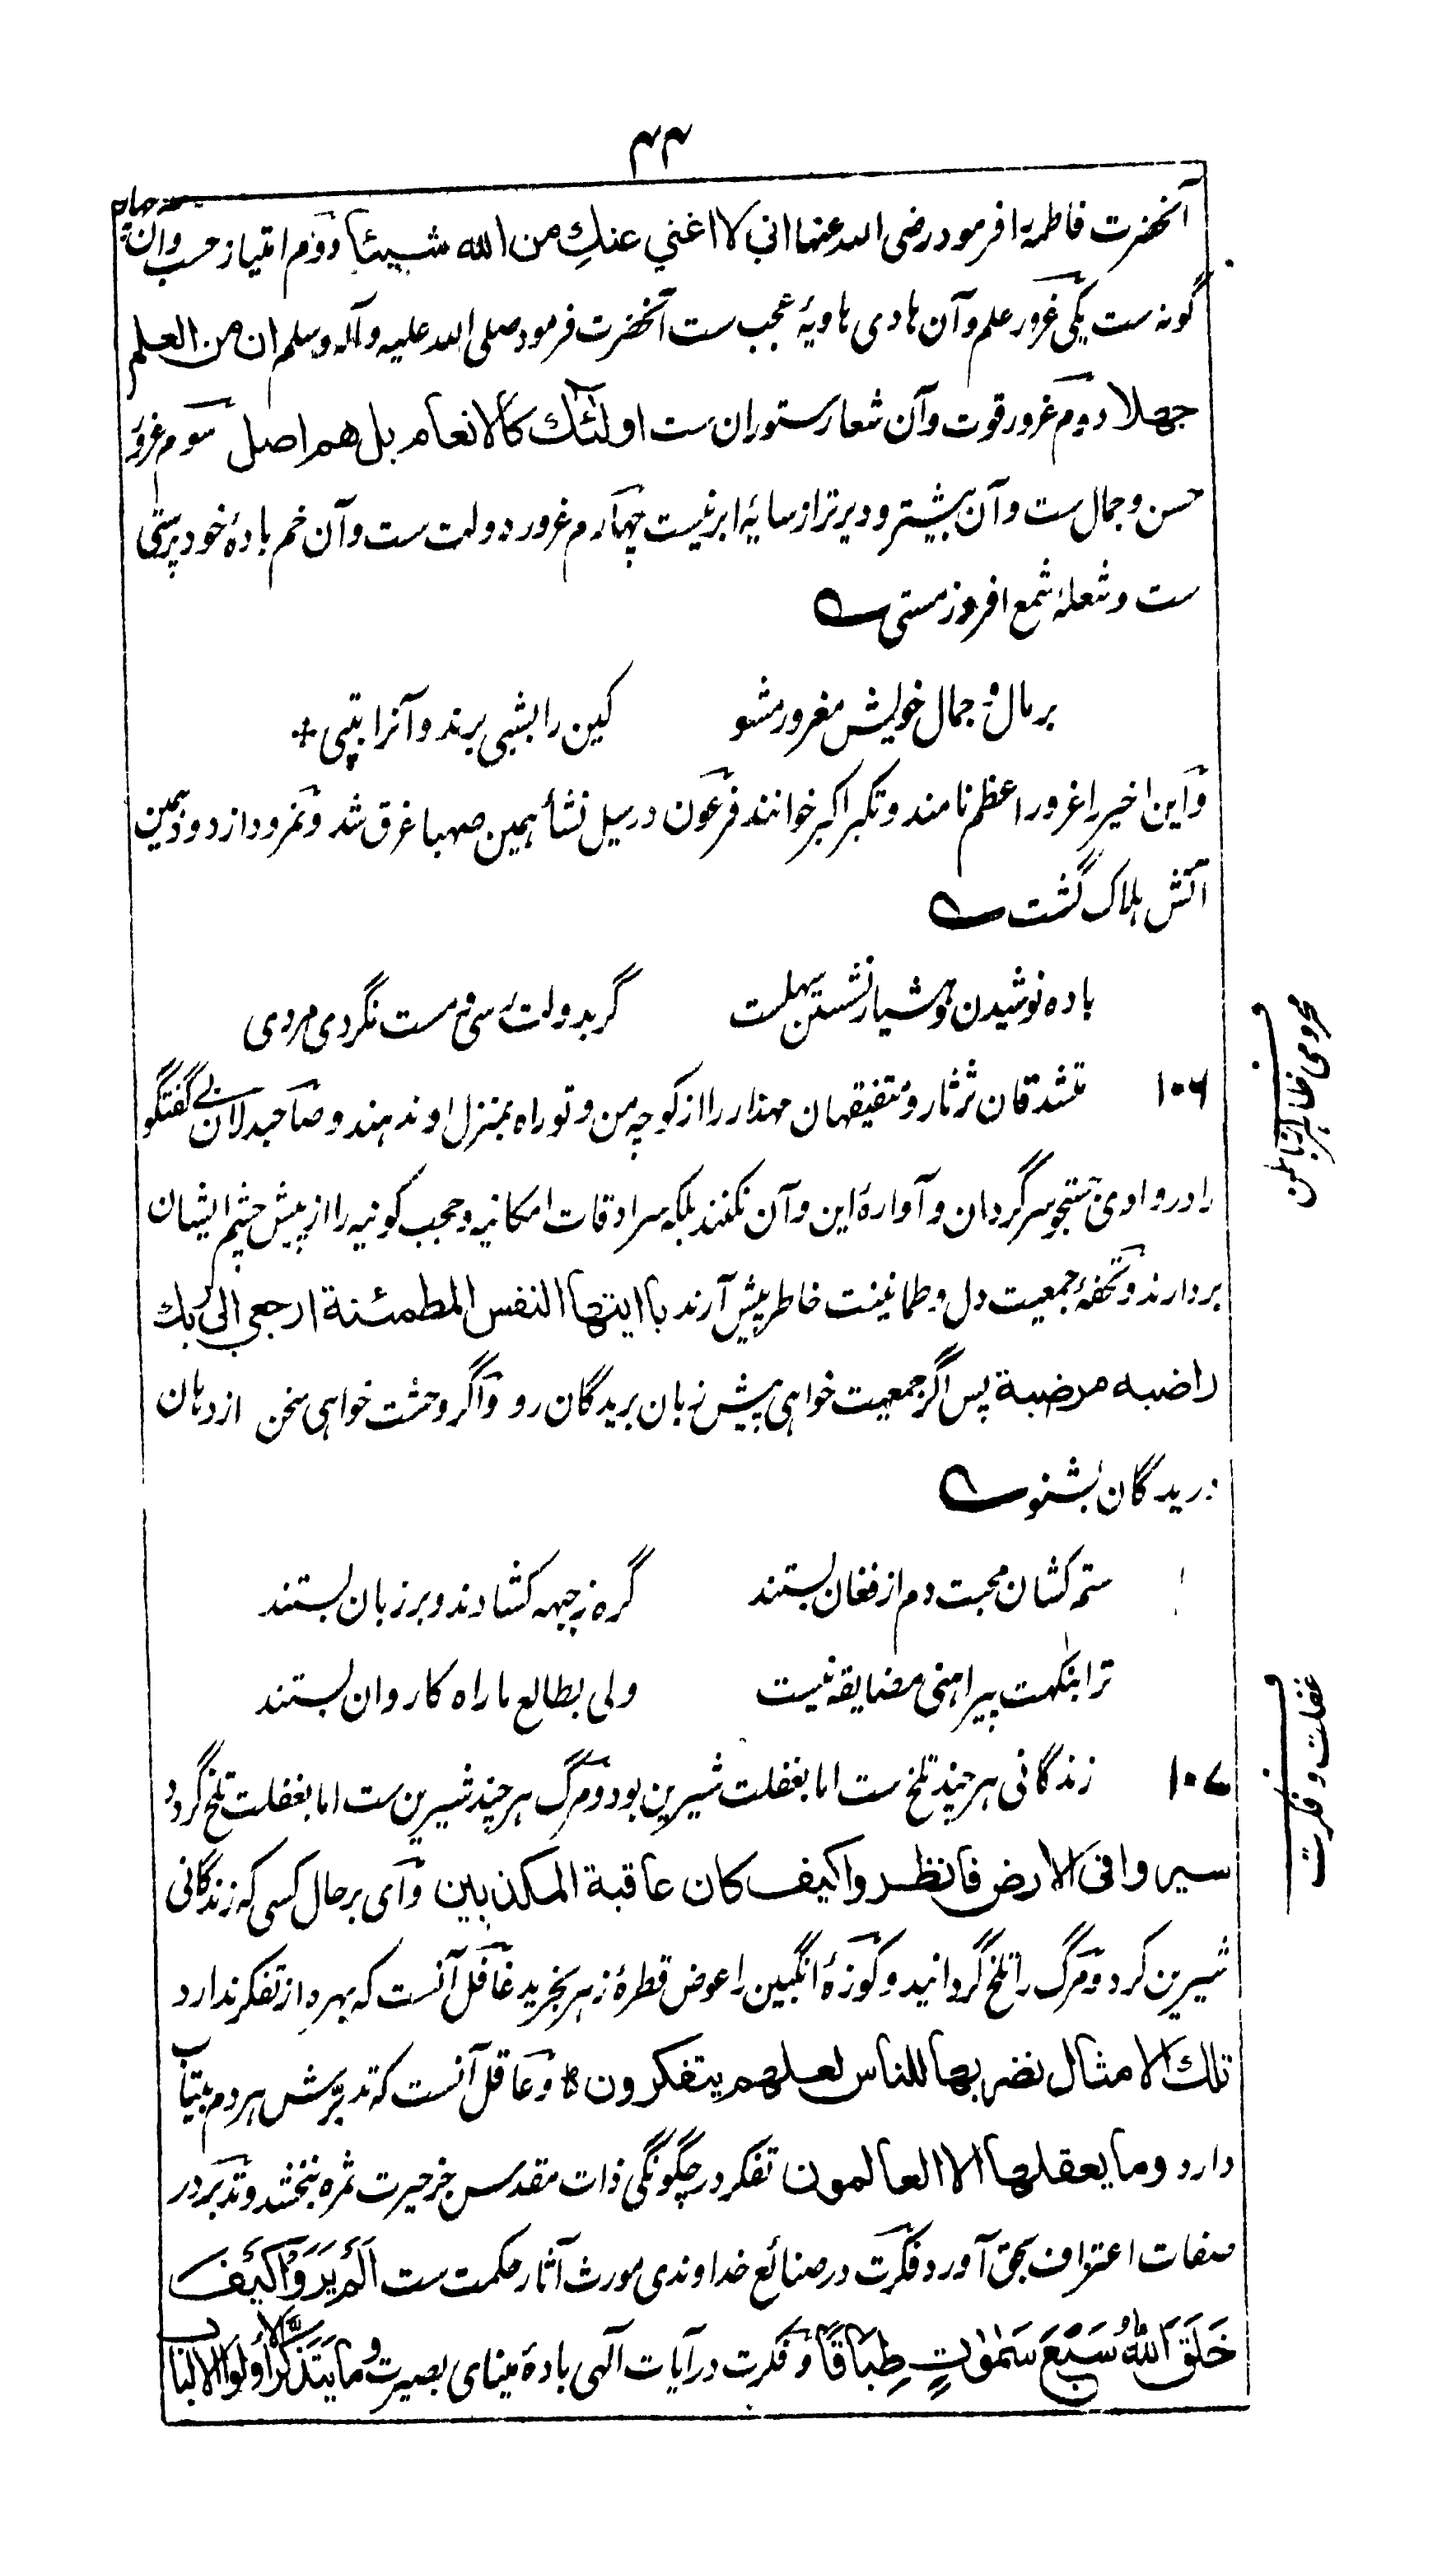 ۴۴
آنحضرت فاطمه را فرمود رضی الله عنها انی لا اغنی عنكِ من الله شيئاً دوم امتیاز حسب وان چهار
گونه ست یکی غرور علم و آن هادی هاویهٔ عجب ست آنحضرت فرمود صلی الله علیه و آله وسلم ان من العلم
جهلا دوم غرور قوت و آن شعار ستوران ست اولئك كالانعام بل هم اضل سوم غرور
حسن و جمال ست و آن بیشتر و دیرتر از سایهٔ ابر نیست چهارم غرور دولت ست و آن خم بادهٔ خودپرستی
ست و شعلهٔ شمع افروز مستی
بر مال و جمال خویش مغرور مشو کین را بشبی برند و آنرا بتپی
و این اخیر را غرور اعظم نامند و تکبر اکبر خوانند فرعون در سیل نشأ همین صهبا غرق شد و نمرود از دود همین
آتش هلاک گشت
باده نوشیدن و هشیار نشستن سهلست گر بدولت رسی و مست نگردی مردی
۱۰۶ متشدقان ثرثار و متفیقهان مهذار را از کوچه من و تو راه بمنزل او ندهند و صاحبدلان بے گفتگو
را در وادی جستجو سرگردان و آوارهٔ این و آن نکنند بلکه سرادقات امکانیه و حجب کونیه را از پیش چشم ایشان
بردارند و تحفهٔ جمعیت دل و طمانینت خاطر پیش آرند یا ایتها النفس المطمئنة ارجعی الی ربك
راضیه مرضیة پس اگر جمعیت خواهی پیش زبان بریدگان رو و اگر وحشت خواهی سخن از دهان
دریدگان بشنو
ستم کشان محبت دم از فغان بستند گره ز جبهه کشادند و بر زبان بستند
ترا بنکهت پیراهنی مضایقه نیست ولی بطالع ما راه کاروان بستند
۱۰۷ زندگانی هر چند تلخ ست اما بغفلت شیرین بود و مرگ هر چند شیرین ست اما بغفلت تلخ گردد
سیروا فی الارض فانظروا کیف کان عاقبة المکذبین وای بر حال کسی که زندگانی
شیرین کرد و مرگ را تلخ گردانید و کوزهٔ انگبین را عوض قطرهٔ زهر بخرید غافل آنست که بهره از تفکر ندارد
تلك الامثال نضربها للناس لعلهم یتفکرون ہ و عاقل آنست که تدبرش هر دم بیتاب
دارد وما یعقلها الا العالمون تفکر در چگونگی ذات مقدس جز حیرت ثمره نبخشد و تدبر در
صفات اعتراف بحق آورد فکرت در صنائع خداوندی مورث آثار حکمت ست اَلَمْ يَرَوْا كَيْفَ
خَلَقَ اللّٰهُ سَبْعَ سَمٰوٰتٍ طِبَاقًا و فکرت در آیات آلهی بادهٔ مینای بصیرت وَمَا يَتَذَكَّرُ اِلَّا اُولُوا الالباب
محرومی ظاهر از باطن
غفلت و فکرت